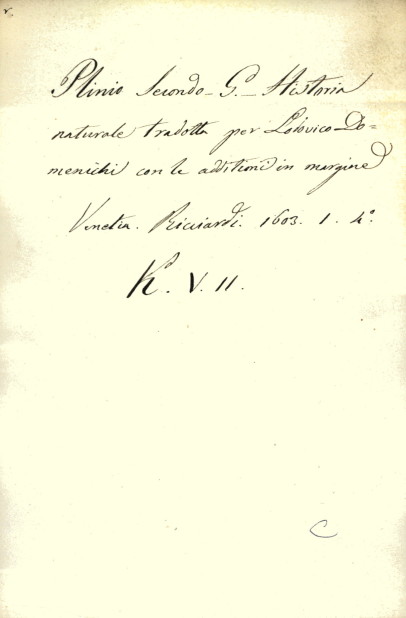 Plinio Secondo_ G._ Historia
naturale tradotta per Lodovico Do=
menichi con le additioni in margine
Venetia. Ricciardi. 1603. 1. 4°.
K. V. 11.
C